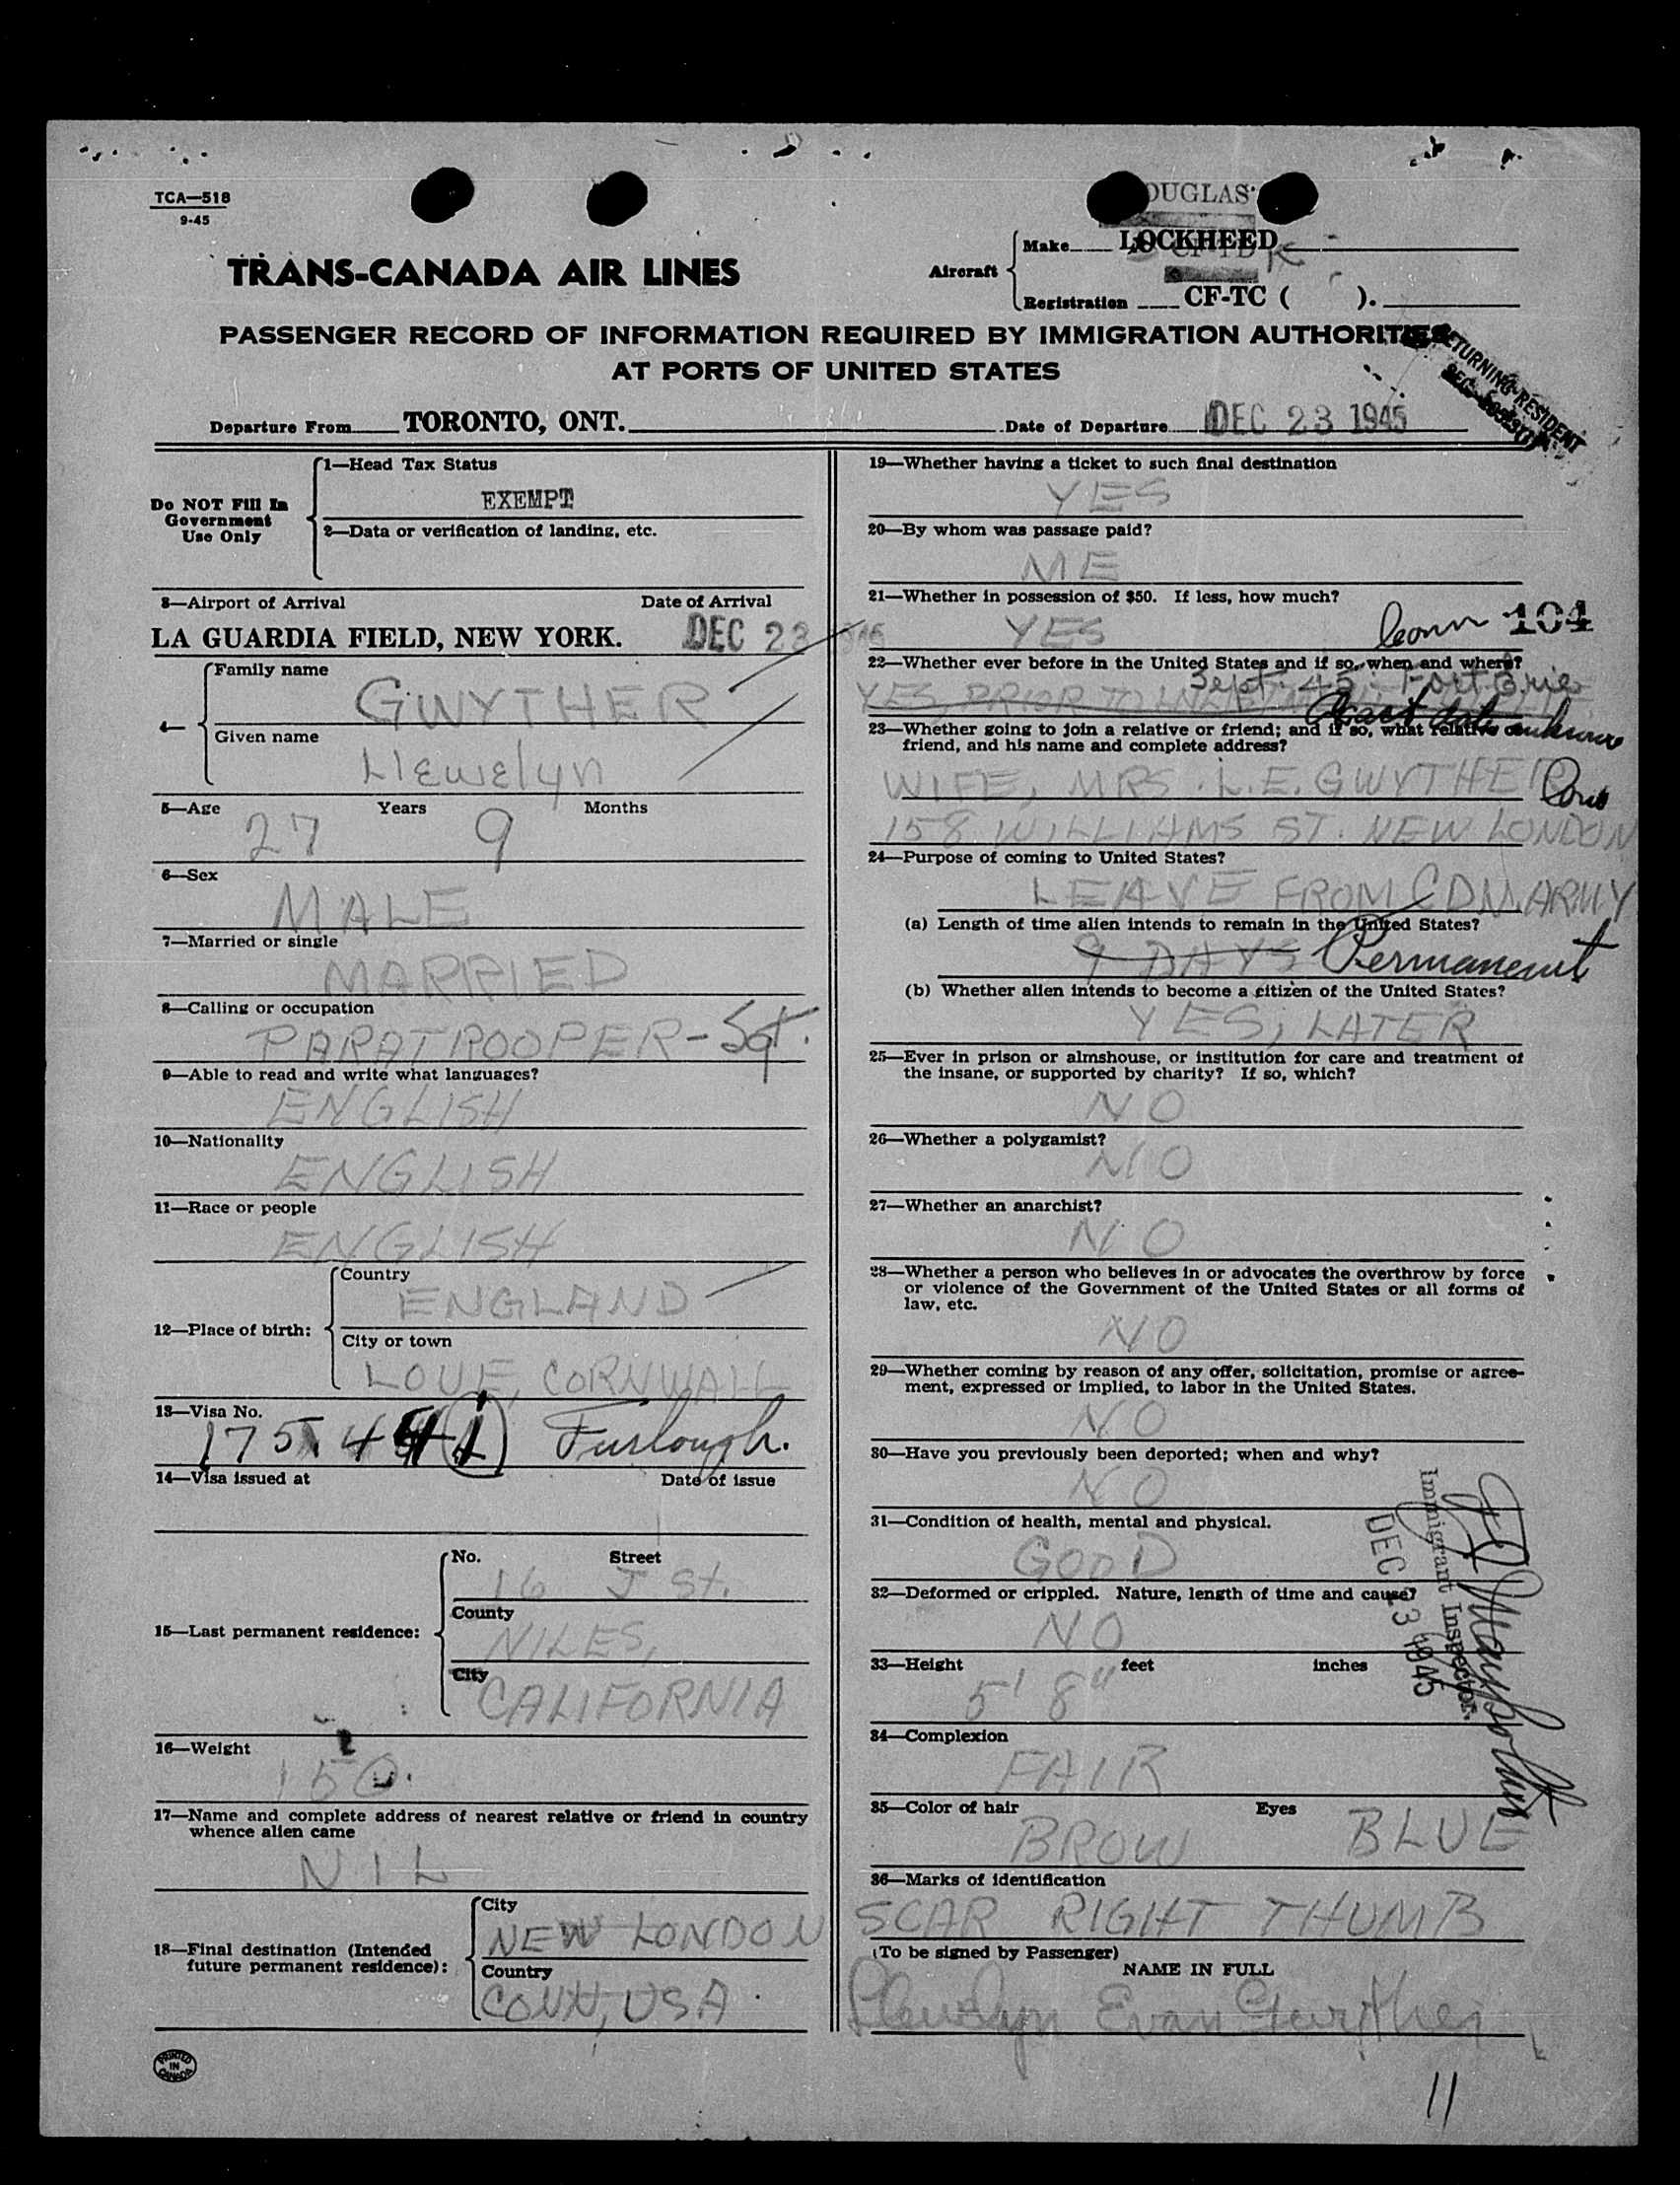 TCA—518
9-45
TRANS-CANADA AIR LINES
DOUGLAS
Aircraft
Make LOCKHEED
Registration CF-TC ( ).
PASSENGER RECORD OF INFORMATION REQUIRED BY IMMIGRATION AUTHORITIES
AT PORTS OF UNITED STATES
RETURNING RESIDENT
Departure From TORONTO, ONT. Date of Departure DEC 23 1945
Do NOT Fill In
Government
Use Only
1—Head Tax Status
EXEMPT
2—Data or verification of landing, etc.
3—Airport of Arrival Date of Arrival
LA GUARDIA FIELD, NEW YORK. DEC 23 1945
4—
Family name
GWYTHER
Given name
Llewelyn
5—Age Years Months
27 9
6—Sex
MALE
7—Married or single
MARRIED
8—Calling or occupation
PARATROOPER - Sgt.
9—Able to read and write what languages?
ENGLISH
10—Nationality
ENGLISH
11—Race or people
ENGLISH
12—Place of birth:
Country
ENGLAND
City or town
LOUE, CORNWALL
13—Visa No.
175. Furlough.
14—Visa issued at Date of issue
15—Last permanent residence:
No. Street
16 J St.
County
NILES,
City
CALIFORNIA
16—Weight
150
17—Name and complete address of nearest relative or friend in country
whence alien came
NIL
18—Final destination (Intended
future permanent residence):
City
NEW LONDON
Country
CONN, USA.
PRINTED
IN
CANADA
19—Whether having a ticket to such final destination
YES
20—By whom was passage paid?
ME
21—Whether in possession of $50. If less, how much?
YES
Conn 104
22—Whether ever before in the United States and if so, when and where?
Sept. 45 Fort Erie
YES, PRIOR TO
Exact date unknown
23—Whether going to join a relative or friend; and if so, what relative or
friend, and his name and complete address?
WIFE, MRS. L.E. GWYTHER
158 WILLIAMS ST. NEW LONDON Conn
24—Purpose of coming to United States?
LEAVE FROM CDN. ARMY
(a) Length of time alien intends to remain in the United States?
9 DAYS Permanent
(b) Whether alien intends to become a citizen of the United States?
YES, LATER
25—Ever in prison or almshouse, or institution for care and treatment of
the insane, or supported by charity? If so, which?
NO
26—Whether a polygamist?
NO
27—Whether an anarchist?
NO
28—Whether a person who believes in or advocates the overthrow by force
or violence of the Government of the United States or all forms of
law, etc.
NO
29—Whether coming by reason of any offer, solicitation, promise or agree-
ment, expressed or implied, to labor in the United States.
NO
30—Have you previously been deported; when and why?
NO
31—Condition of health, mental and physical.
GOOD
32—Deformed or crippled. Nature, length of time and cause?
NO
33—Height feet inches
5' 8"
34—Complexion
FAIR
35—Color of hair Eyes
BROW BLUE
36—Marks of identification
SCAR RIGHT THUMB
(To be signed by Passenger)
NAME IN FULL
Llewelyn Evan Gwyther
Immigrant Inspector.
DEC 23 1945
11